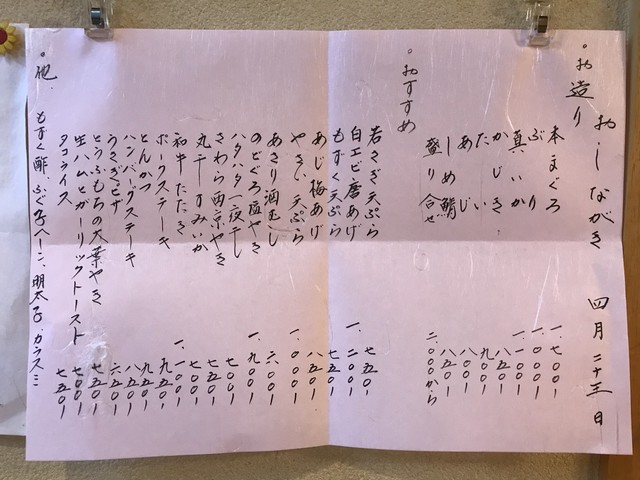 おしながき 四月二十三日
・お造り
本まぐろ 一、七〇〇-
ぶり 一、〇〇〇-
真いか 一、一〇〇-
かじき 八五〇-
たい 九〇〇-
あじ 七〇〇-
しめ鯖 八五〇-
盛り合せ 二、〇〇〇から
・おすすめ
若さぎ天ぷら 七五〇-
白エビ唐あげ 一、二〇〇-
もずく天ぷら 七五〇-
あじ梅あげ 八五〇-
やさい天ぷら 一、〇〇〇-
あさり酒むし 六〇〇-
のどぐろ塩やき 一、九〇〇-
ハタハタ一夜干し 七〇〇-
さわら西京やき 七五〇-
丸干すみいか 七〇〇-
和牛たたき 一、一〇〇-
ポークステーキ 九五〇-
とんかつ 九五〇-
ハンバーグステーキ 八五〇-
うさぎピザ 六五〇-
とうふもちの大葉やき 七五〇-
生ハムとガーリックトースト 七〇〇-
タコライス 七五〇-
・他 もずく酢、ふぐ子、明太子、カラスミ